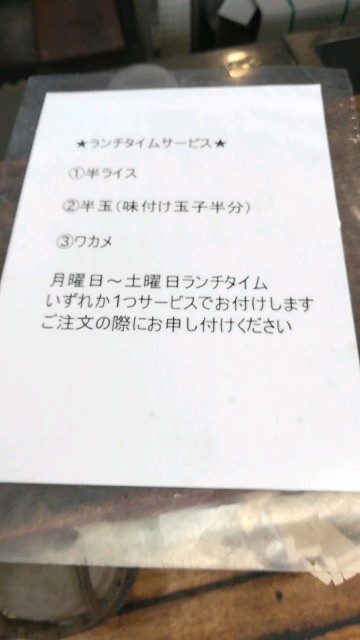 ★ランチタイムサービス★
①半ライス
②半玉(味付け玉子半分)
③ワカメ
月曜日～土曜日ランチタイム
いずれか1つサービスでお付けします
ご注文の際にお申し付けください